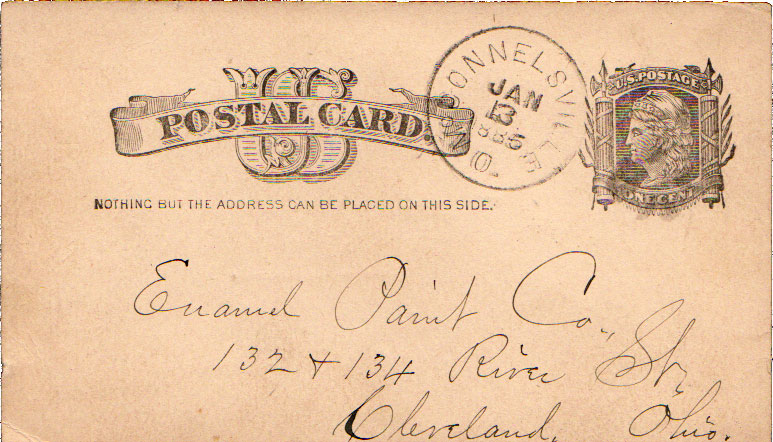 US
POSTAL CARD.
McCONNELSVILLE
JAN
13
1885
O.
U.S. POSTAGE
ONE CENT
NOTHING BUT THE ADDRESS CAN BE PLACED ON THIS SIDE.
Enamel Paint Co.,
132 + 134 River St,
Cleveland, Ohio.